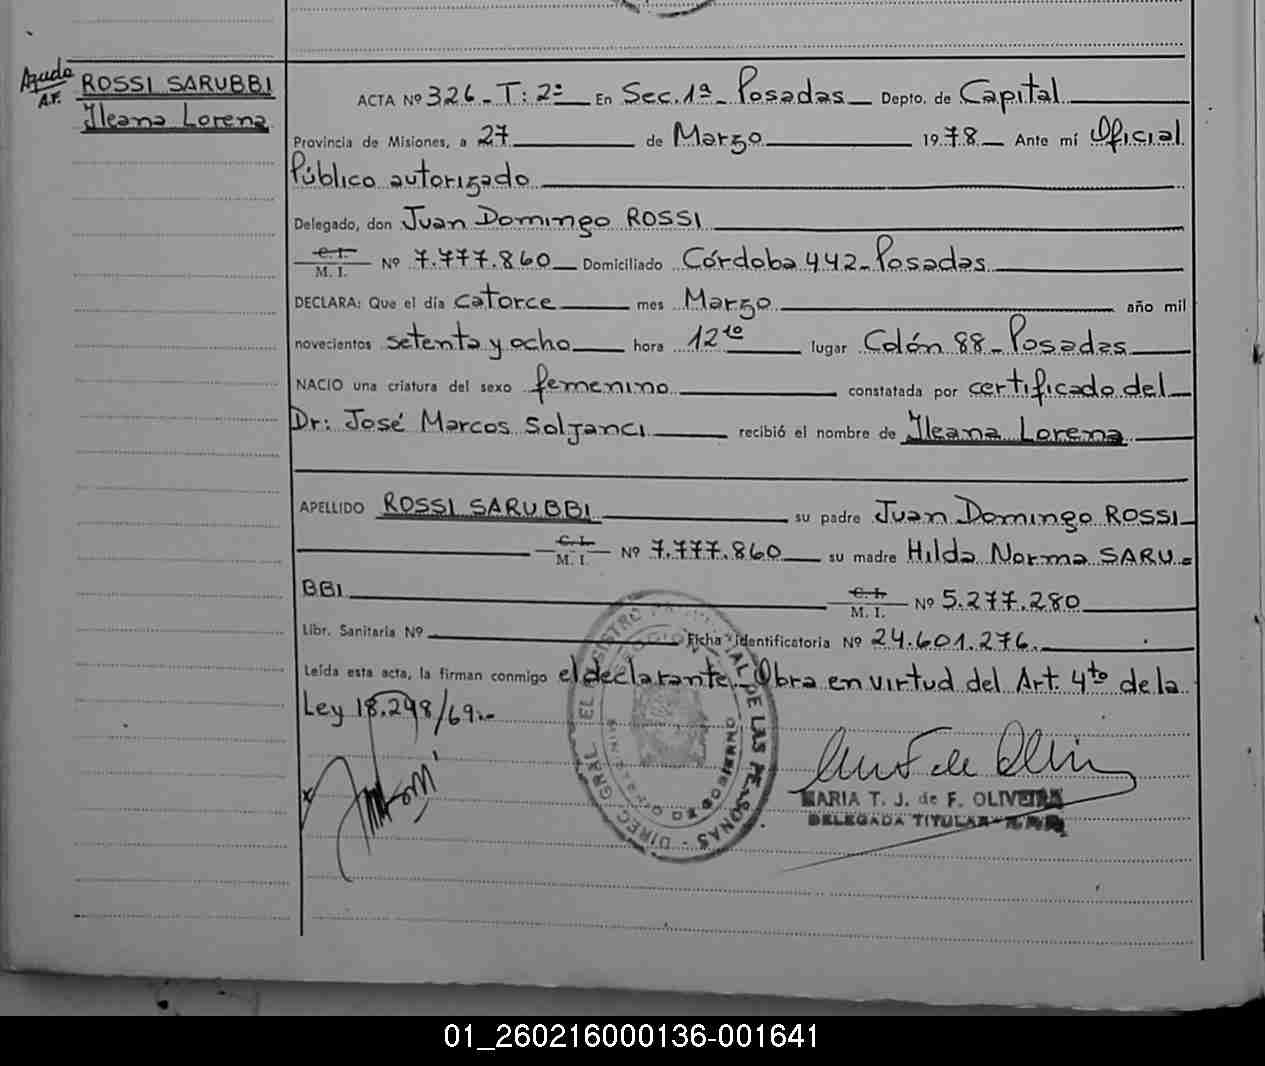 ROSSI SARUBBI
Ileana Lorena
ACTA Nº 326_ T: 2º En Sec. 1ª_ Posadas Depto. de Capital
Provincia de Misiones, a 27 de Marzo 1978. Ante mí Oficial
Público autorizado
Delegado, don Juan Domingo ROSSI
C. I.
M. I. Nº 7.777.860 Domiciliado Córdoba 442_ Posadas
DECLARA: Que el día catorce mes Marzo año mil
novecientos setenta y ocho hora 12 to lugar Colón 88_ Posadas
NACIO una criatura del sexo femenino constatada por certificado del
Dr: José Marcos Soljanci recibió el nombre de Ileana Lorena
APELLIDO ROSSI SARUBBI su padre Juan Domingo ROSSI
C. I.
M. I. Nº 7.777.860 su madre Hilda Norma SARU=
BBI C. I.
M. I. Nº 5.277.280
Libr. Sanitaria Nº Ficha identificatoria Nº 24.601.276.
Leída esta acta, la firman conmigo el declarante_ Obra en virtud del Art. 4to de la
Ley 18.248/69.-
DIREC. GRAL. EL REGISTRO PROVINCIAL DE LAS PERSONAS
MARIA T. J. de F. OLIVEIRA
DELEGADA TITULAR
01_260216000136-001641